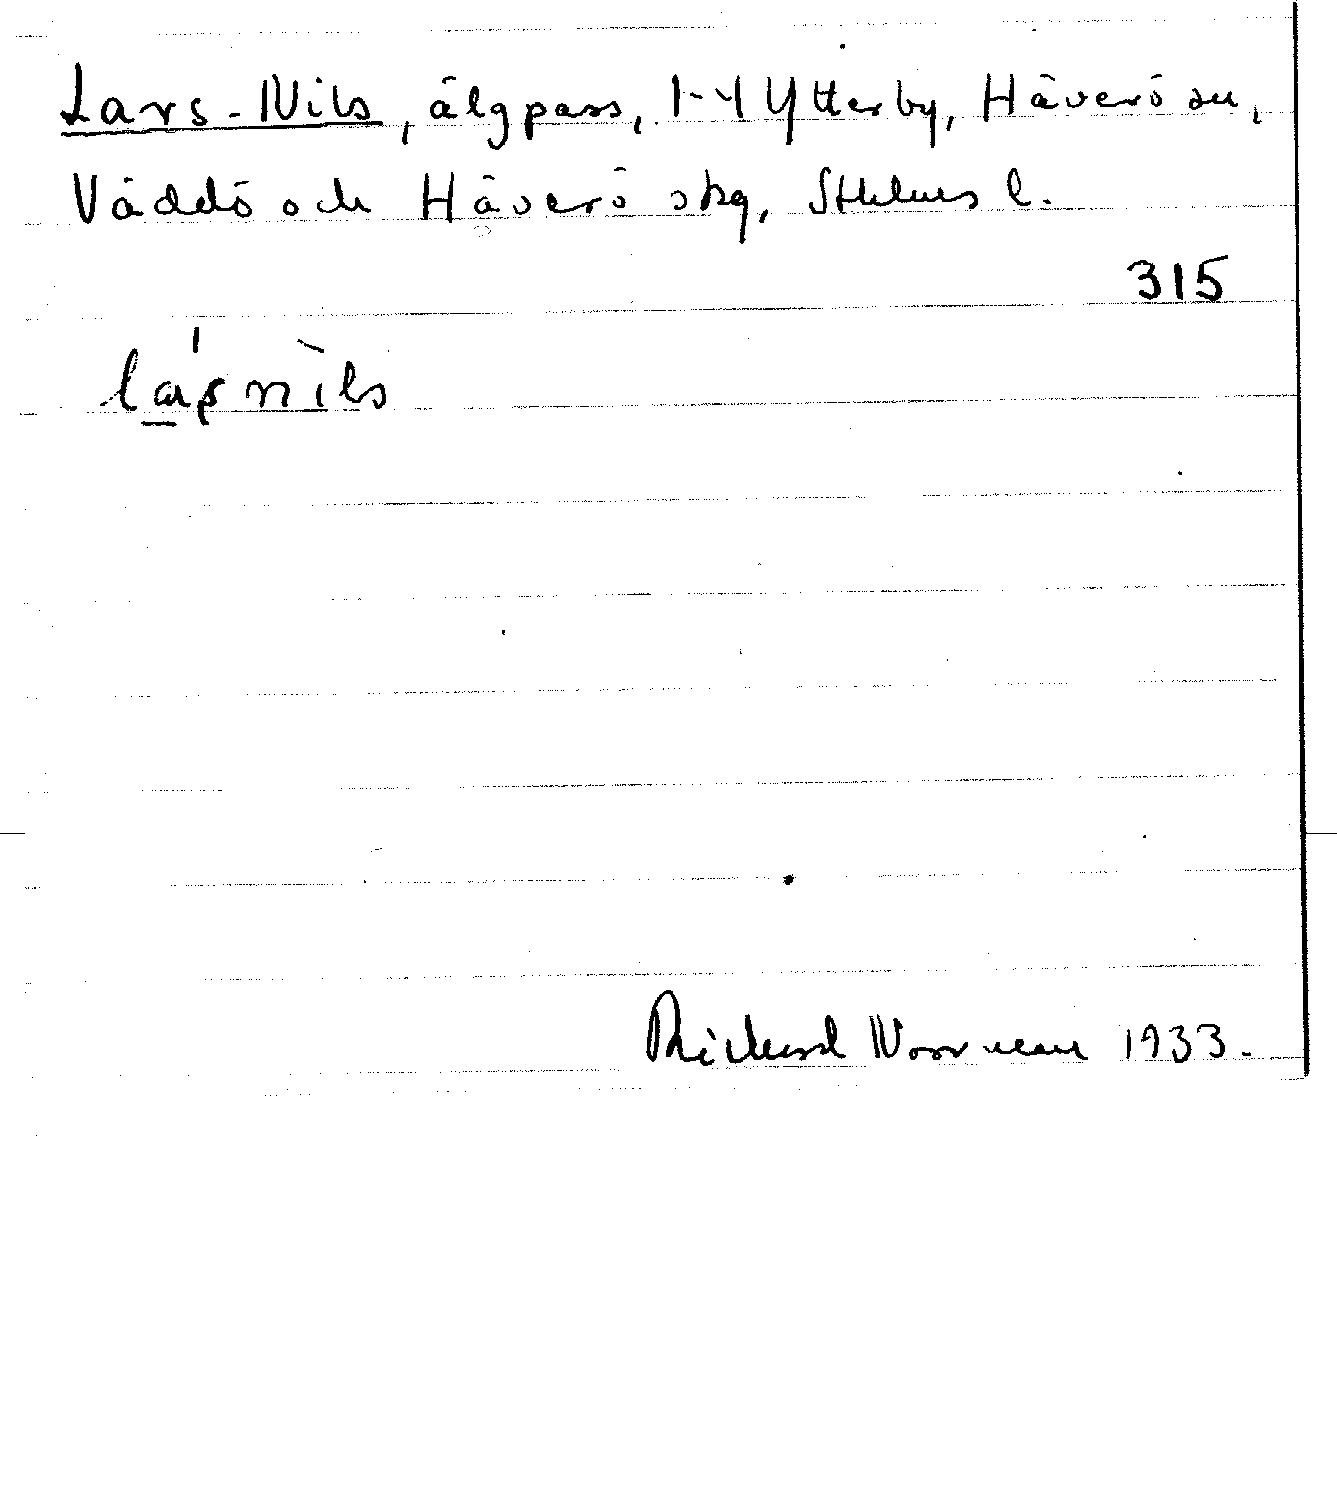 Lars-Nils, älgpass, 1-4 Ytterby, Häverö sn,
Väddö och Häverö skg, Sthlms l.
315
la̱ṣnìls
Rickard Norrman 1933.